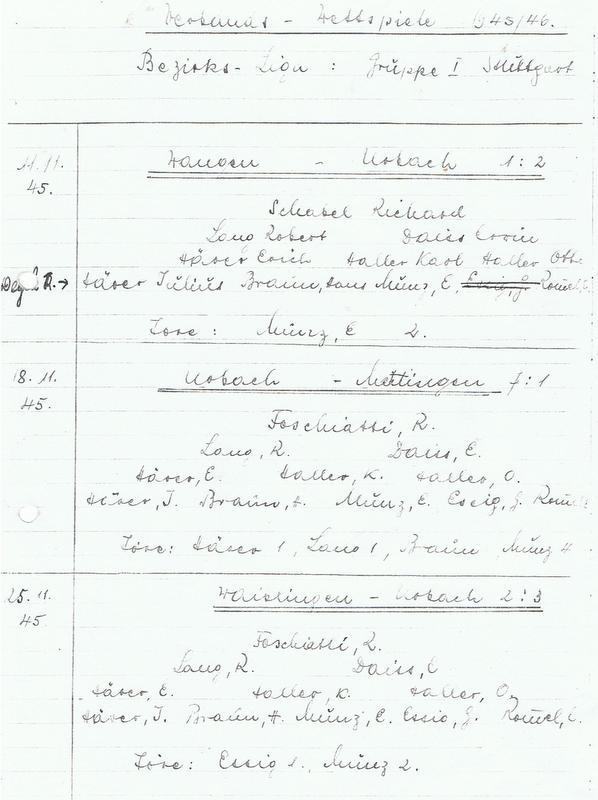 Verbands - Wettspiele 1945/46.
Bezirks - Liga : Gruppe I Stuttgart
11.11. Wangen - Urbach 1 : 2
45.
Schabel Richard
Lang Robert Daiss Erwin
Härer Erich Haller Karl Haller Otto
→ Härer Julius Braun, Hans Münz, E. Essig, G. Romel, E.
Tore : Münz, E 2.
18. 11. Urbach - Mettingen 7 : 1
45.
Foschiatti, R.
Lang, R. Daiss, E.
Härer, E. Haller, K. Haller, O.
Härer, J. Braun, H. Münz, E. Essig, G. Romel
Tore: Härer 1, Lang 1, Braun Münz 4
25. 11. Waiblingen - Urbach 2 : 3
45.
Foschiatti, R.
Lang, R. Daiss, E
Härer, E. Haller, K. Haller, O.
Härer, J. Braun, H. Münz, E. Essig, G. Romel, E.
Tore: Essig 1., Münz 2.